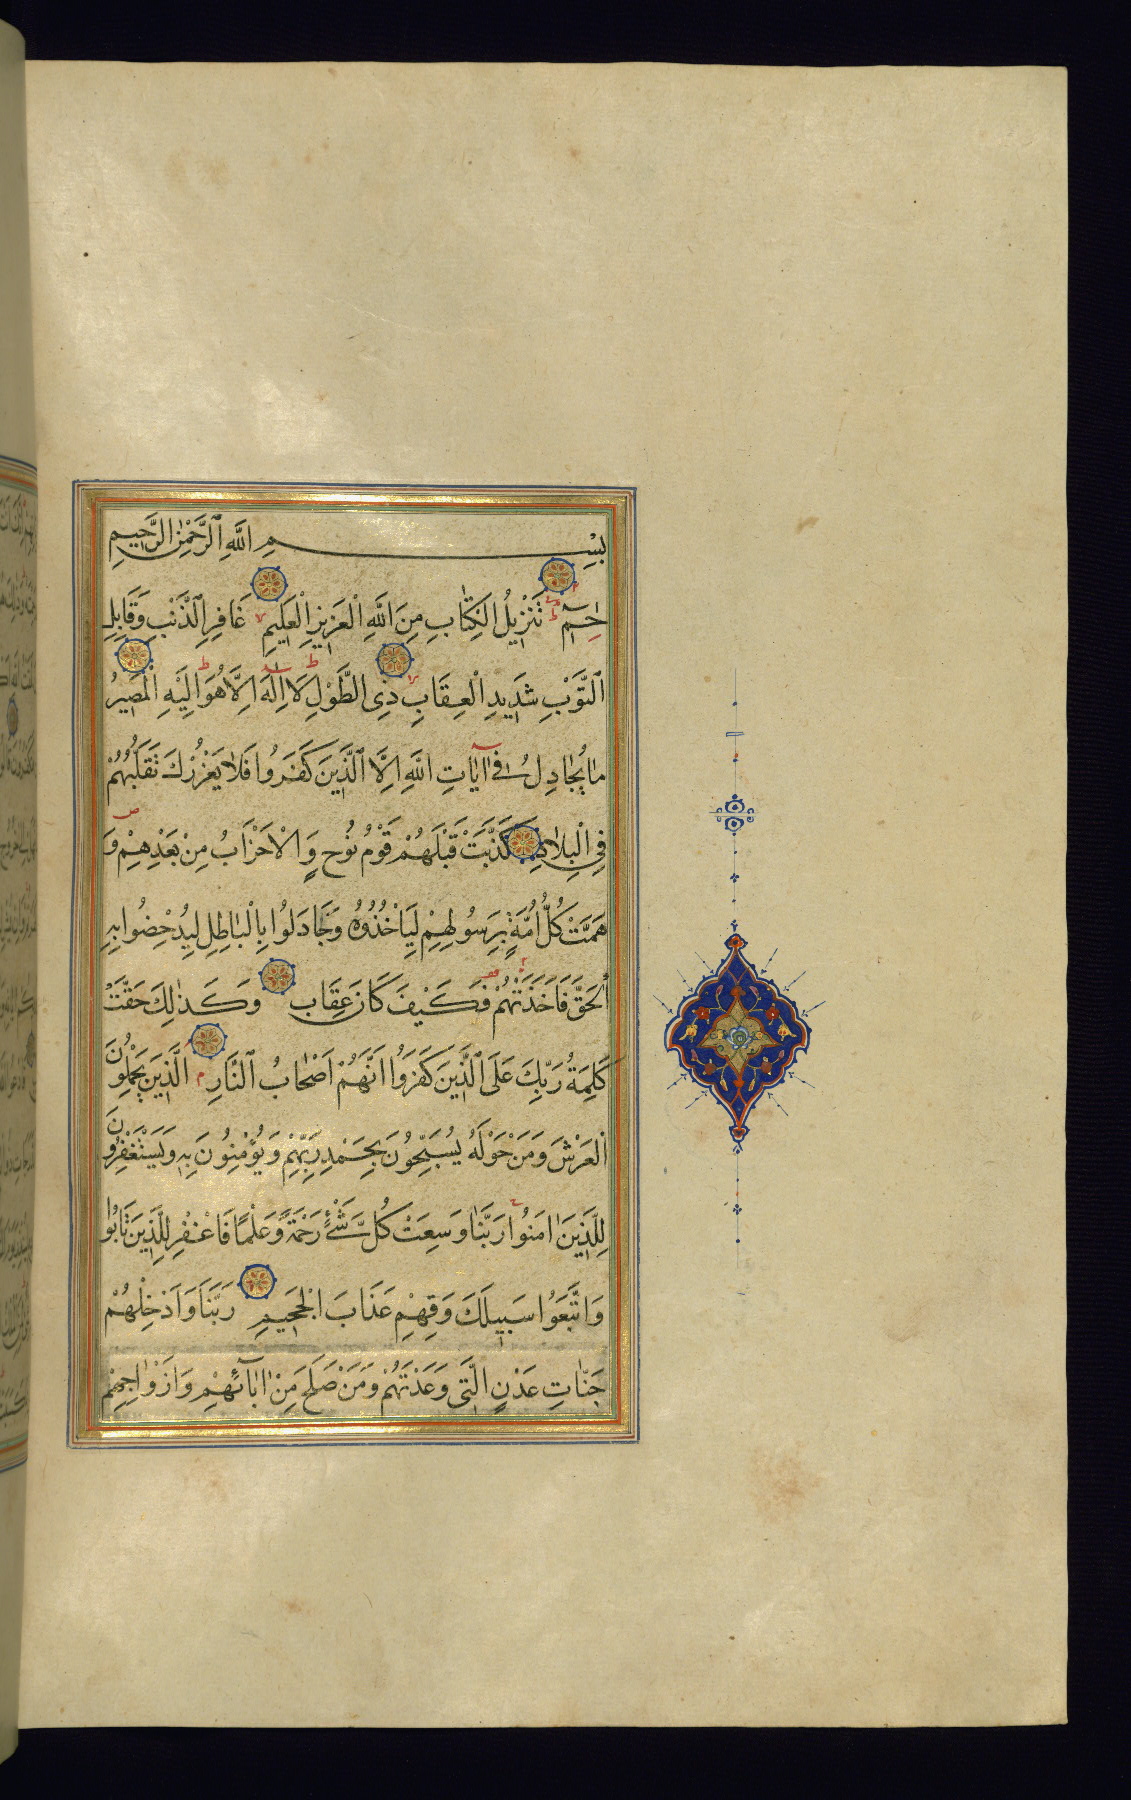 بِسْمِ اللَّهِ الرَّحْمٰنِ الرَّحِيمِ
حٰمٓ تَنْزِيلُ الْكِتَابِ مِنَ اللَّهِ الْعَزِيزِ الْعَلِيمِ غَافِرِ الذَّنْبِ وَقَابِلِ
التَّوْبِ شَدِيدِ الْعِقَابِ ذِى الطَّوْلِ لَا اِلٰهَ اِلَّا هُوَ اِلَيْهِ الْمَصِيرُ
مَا يُجَادِلُ فِى اٰيَاتِ اللَّهِ اِلَّا الَّذِينَ كَفَرُوا فَلَا يَغْرُرْكَ تَقَلُّبُهُمْ
فِى الْبِلَادِ كَذَّبَتْ قَبْلَهُمْ قَوْمُ نُوحٍ وَالْاَحْزَابُ مِنْ بَعْدِهِمْ وَ
هَمَّتْ كُلُّ اُمَّةٍ بِرَسُولِهِمْ لِيَاْخُذُوهُ وَجَادَلُوا بِالْبَاطِلِ لِيُدْحِضُوا بِهِ
الْحَقَّ فَاَخَذْتُهُمْ فَكَيْفَ كَانَ عِقَابِ وَكَذٰلِكَ حَقَّتْ
كَلِمَةُ رَبِّكَ عَلَى الَّذِينَ كَفَرُوا اَنَّهُمْ اَصْحَابُ النَّارِ الَّذِينَ يَحْمِلُونَ
الْعَرْشَ وَمَنْ حَوْلَهُ يُسَبِّحُونَ بِحَمْدِ رَبِّهِمْ وَيُؤْمِنُونَ بِهِ وَيَسْتَغْفِرُونَ
لِلَّذِينَ اٰمَنُوا رَبَّنَا وَسِعْتَ كُلَّ شَىْءٍ رَحْمَةً وَعِلْمًا فَاغْفِرْ لِلَّذِينَ تَابُوا
وَاتَّبَعُوا سَبِيلَكَ وَقِهِمْ عَذَابَ الْجَحِيمِ رَبَّنَا وَاَدْخِلْهُمْ
جَنَّاتِ عَدْنٍ الَّتِى وَعَدْتَهُمْ وَمَنْ صَلَحَ مِنْ اٰبَآئِهِمْ وَاَزْوَاجِهِمْ